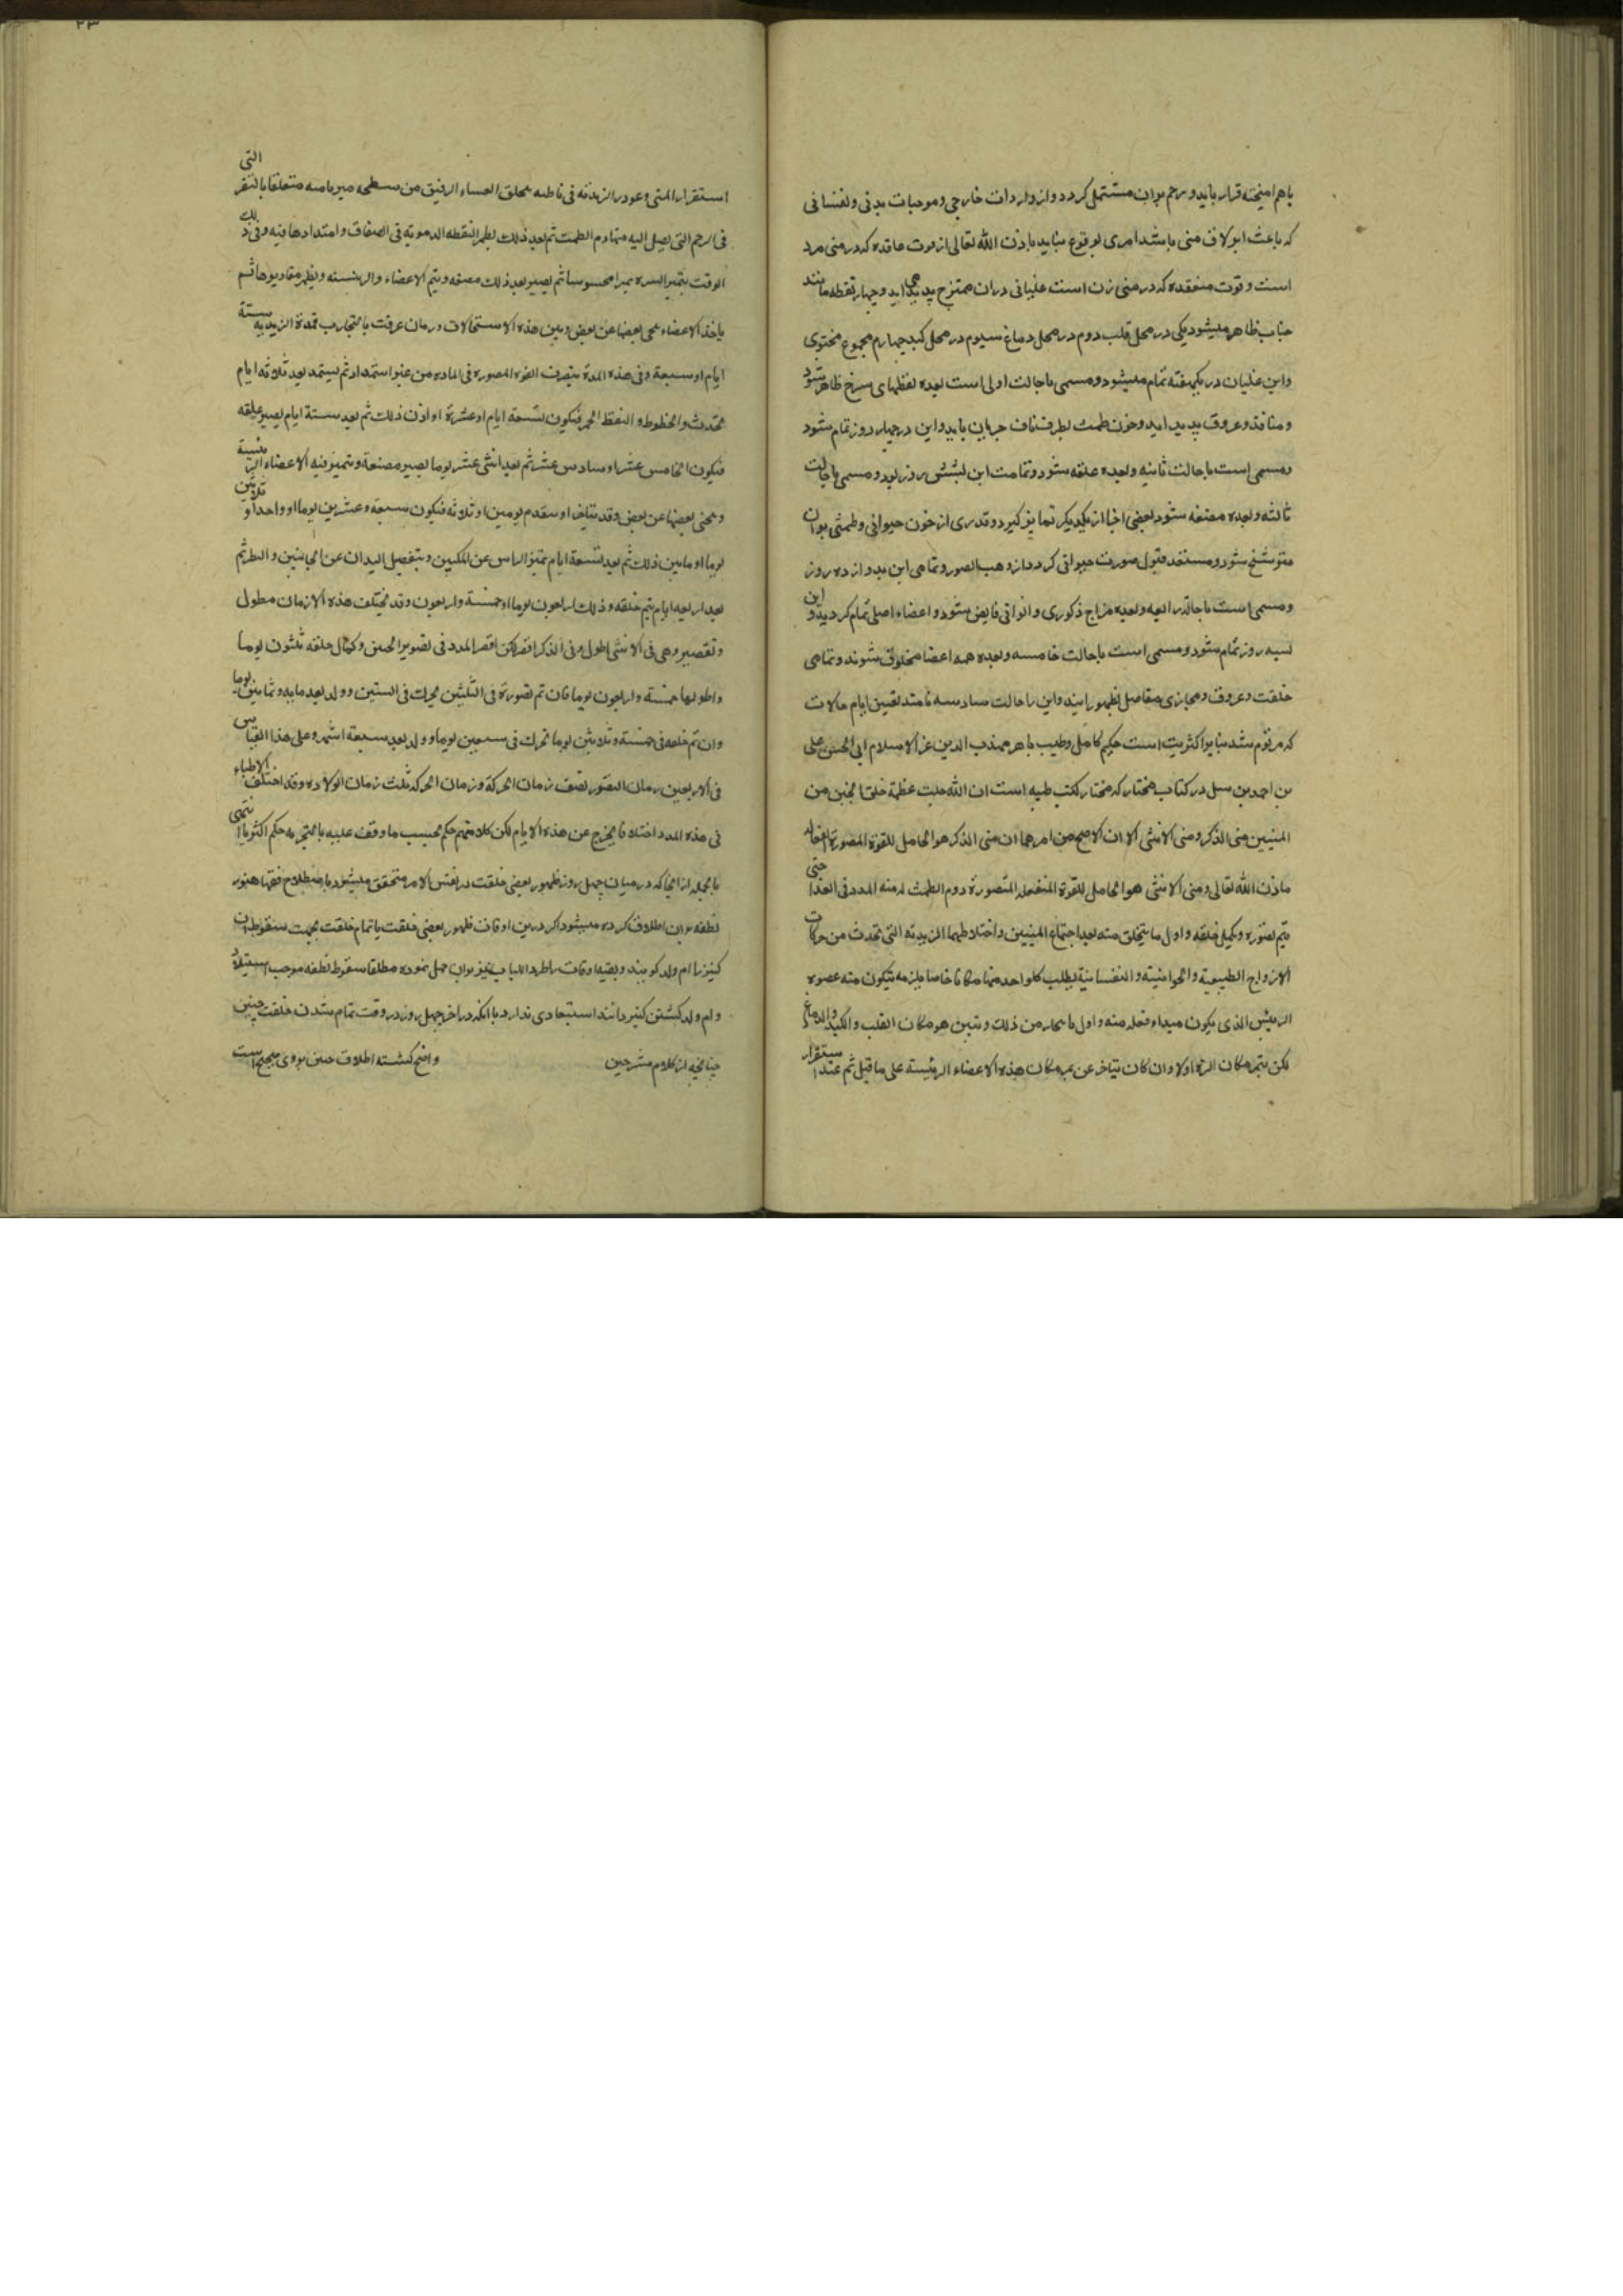 باهم امیخته قرار یابد و رحم بران مشتمل کردد و از واردات خارجی و موجبات بدنی و نفسانی
که باعث ابولاق منی باشد امری بوقوع نیاید باذن الله تعالی از قوت عاقده که در منی مرد
است و قوت منعقده که در منی زن است غلیانی دران ممتزج پدید می اید و چهار نقطه مانند
حباب ظاهر میشود یکی در محل قلب دوم در محل دماغ سیوم در محل کبد چهارم مجموع محتوی
واین غلیان در یکهفته تمام میشود و مسمی باحالت اولی است بعده نقطهای سرخ ظاهر شود
و منافذ و عروق پدید اید و خون طمث بطرف ناف جریان یابد و این در چهار روز تمام شود
و مسمی است باحالت ثانیه و بعده علقه شود و تمامت این بشش روز بود و مسمی باحالت
ثالثه و بعده مضغه شود بعضی اجزا از یکدیکر تمایز کیرد و قدری از خون حیوانی و طمثی بران
مترشح شود و مستعد قبول صورت حیوانی کردد از وهب الصور و تمامی این بدوازده روز
و مسمی است باحالت رابعه و بعده مزاج ذکوری و انوثی فایض شود و اعضاء اصلی تمام کردید و این
بسه روز تمام شود و مسمی است باحالت خامسه و بعده همه اعضا مخلوق شوند و تمامی
خلقت و عروق و مجاری مفاصل بظهور رسند و این را حالت سادسه نامند تعیین ایام حالات
که مرقوم شد بنابر اکثریت است حکیم کامل و طبیب ماهر مهذب الدین عز الاسلام ابی الحسن علی
بن احمد بن سبل در کتاب مختار که مختار کتب طبیه است ان الله جلت عظمة خلق الجنین من
المنیین منی الذکر و منی الانثی الا ان الاصح من امرهما ان منی الذکر هو الحامل للقوة المصورة الفعاله
باذن الله تعالی و منی الانثی هو الحامل للقوة المنفعله المتصورة و دم الطمث له منه المدد فی الغذا حتی
یتم تصوره و یکمل خلقه و اول ما یتخلق منه بعد اجتماع المنیین و اختلاطهما الزبدیه التی تحدث من حرکات
الارواح الطبیعیة و الحیوانیته و النفسانیة یطلب کلواحد منها مکانا خاصا یلزمه یتکون منه عضوه
الرئیس الذی یکون مبداء فعله منه و اول ما من ذلک و یتبین هو مکان القلب و الکبد و الدماغ
لکن یتمیز مکان السرة اولا و ان کان یتاخر عن مکان هذه الاعضاء الرئیسة علی ما قیل ثم عند استقرار
استقرار المنی و عود الزبدیه فی باطنه یخلق الغشاء الرقیق من سطحه متعلقا بالنقر التی
فی الرحم التی یصل الیه منها دم الطمث ثم بعد ذلک یظهر النقطه الدمویه فی الصفاق و امتدادها فیه و فی ذلک
الوقت یتمیز السره تمیزا محسوسا ثم یصیر بعد ذلک مضغه و یتم الاعضاء و الرئیسته و یظهر مقادیرها ثم
یاخذ الاعضاء تنحی بعضها عن بعض و بین هذه الاستحالات و زمان عرفت بالتجارب فمدة الزبدیه ستة
ایام او سبعة و فی هذه المدة یتصرف القوة المصوره فی الماده من غیر استمداد ثم یستمد بعد ثلاثه ایام
تحدث و الخطوط و النقط الحمر فیکون تسعة ایام او عشرة او اذن ذلک ثم بعد ستة ایام یصیر علقه
فیکون الخامس عشر او سادس عشر ثم بعد اثنی عشر یوما یصیر مضغة و یتمیز فیه الاعضاء الرئیسیة
و ینحی بعضها عن بعض و قد یتاخر او یتقدم یومین او ثلاثه فیکون سبعة و عشرین یوما او واحدا و ثلاثین
یوما او مابین ذلک ثم بعد تسعة ایام یتمیز الراس عن المنکبین و یتفصل الیدان عن الجانبین و البطن ثم
بعد اربعه ایام یتم خلقه و ذلک اربعون یوما او خمسة و اربعون و قد یختلف هذه الازمان مطول
و تقصیر و هی فی الانثی اطول و فی الذکر اقصر لکن اقصر المدد فی تصویر الجنین و کمال خلقه ثلثون یوما
و اطولها خمسة و اربعون یوما فان تم تصوره فی الثلثین تحرک فی الستین و ولد بعد مایه و ثمانین یوما
و ان تم خلقه فی خمسة و ثلاثین یوما تحرک فی سبعین یوما و ولد بعد سبعة اشهر و علی هذا القیاس
فی الاربعین زمان التصور نصف زمان الحرکة و زمان الحرکه ثلث زمان الولاده و قد اختلف الاطباء
فی هذه المدد اختلافا یخرج عن هذه الایام لکن کلامهم حکم بحسب ما وقف علیه بالتجربه حکم اکثریا انتهی
بالجمله از انجا که در میان چهل روز ظهور بعضی خلقت در نفس الامر متحقق میشود باصطلاح فقها هنوز
نطفه بران اطلاق کرده میشود اکر درین اوقات ظهور بعضی خلقت یا تمام خلقت بجهت سقوط ان
کنیز را ام ولد کویند و بقیه اوقات باطراد الباب نیز بران حمل نموده مطلقا سقوط نطفه موجب استیلاد
و ام ولد کشتن کنیز دانند استبعادی ندارد با انکه در اخر چهل روز در وقت تمام شدن خلقت جنین
چنانچه از کلام مشرحین واضح کشته اطلاق جنین بروی صحیح است